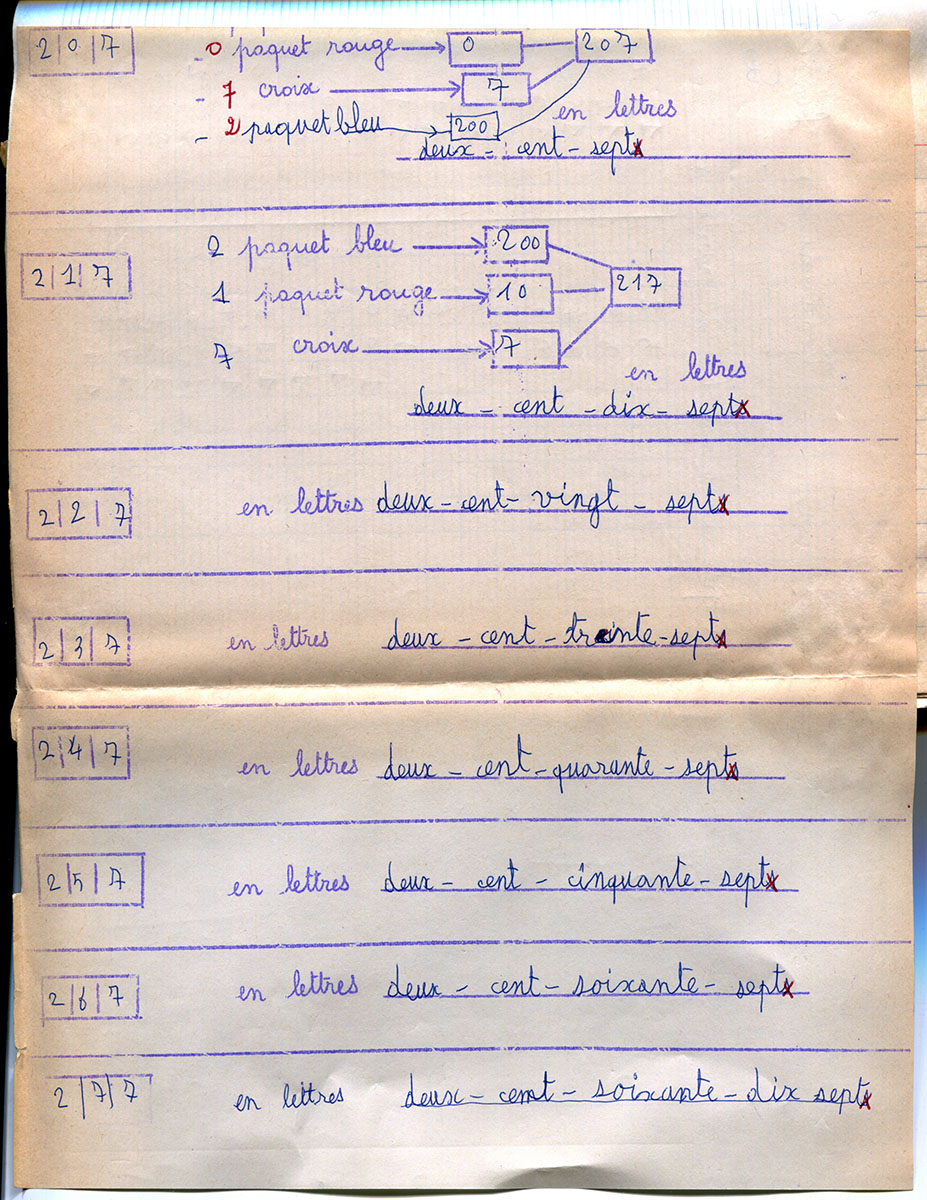 2 | 0 | 7
- 0 paquet rouge → 0 207
- 7 croix → 7
- 2 paquet bleu → 200 en lettres
deux - cent - septs
2 paquet bleu → 200
2 | 1 | 7
1 paquet rouge → 10 217
7 croix → 7
en lettres
deux - cent - dix - septs
2 | 2 | 7 en lettres deux - cent - vingt - septs
2 | 3 | 7 en lettres deux - cent - trente - septs
2 | 4 | 7 en lettres deux - cent - quarante - septs
2 | 5 | 7 en lettres deux - cent - cinquante - septs
2 | 6 | 7 en lettres deux - cent - soixante - septs
2 | 7 | 7 en lettres deux - cent - soixante - dix septs